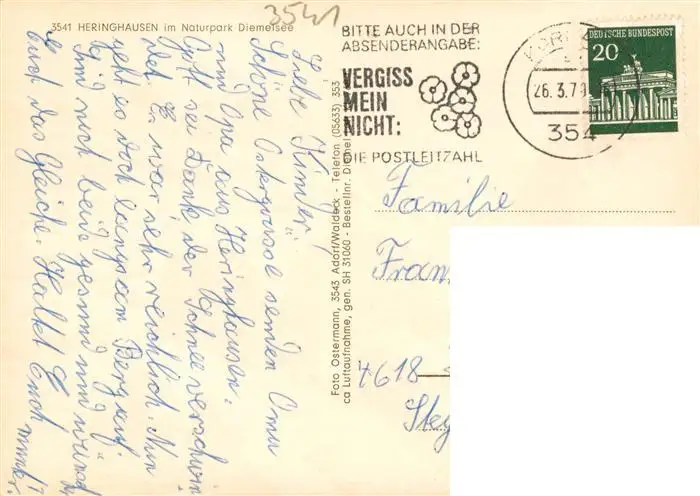 3541
3541 HERINGHAUSEN im Naturpark Diemelsee
Liebe Kinder!
Schöne Ostergrüsse senden Oma
und Opa aus Heringhausen.
Gott sei Dank der Schnee verschwin
det. Er war sehr reichlich. Nun
geht es doch langsam Bergauf.
Sind noch beide gesund und
Euch das Gleiche. Haltet Euch munter
Foto Ostermann, 3543 Adorf/Waldeck - Telefon (05633) 353
ca Luftaufnahme, gen. SH 31060 - Bestellnr. Diemel
BITTE AUCH IN DER
ABSENDERANGABE:
VERGISS
MEIN
NICHT:
DIE POSTLEITZAHL
26.3.7
354
DEUTSCHE BUNDESPOST
20
Familie
Fran
4618